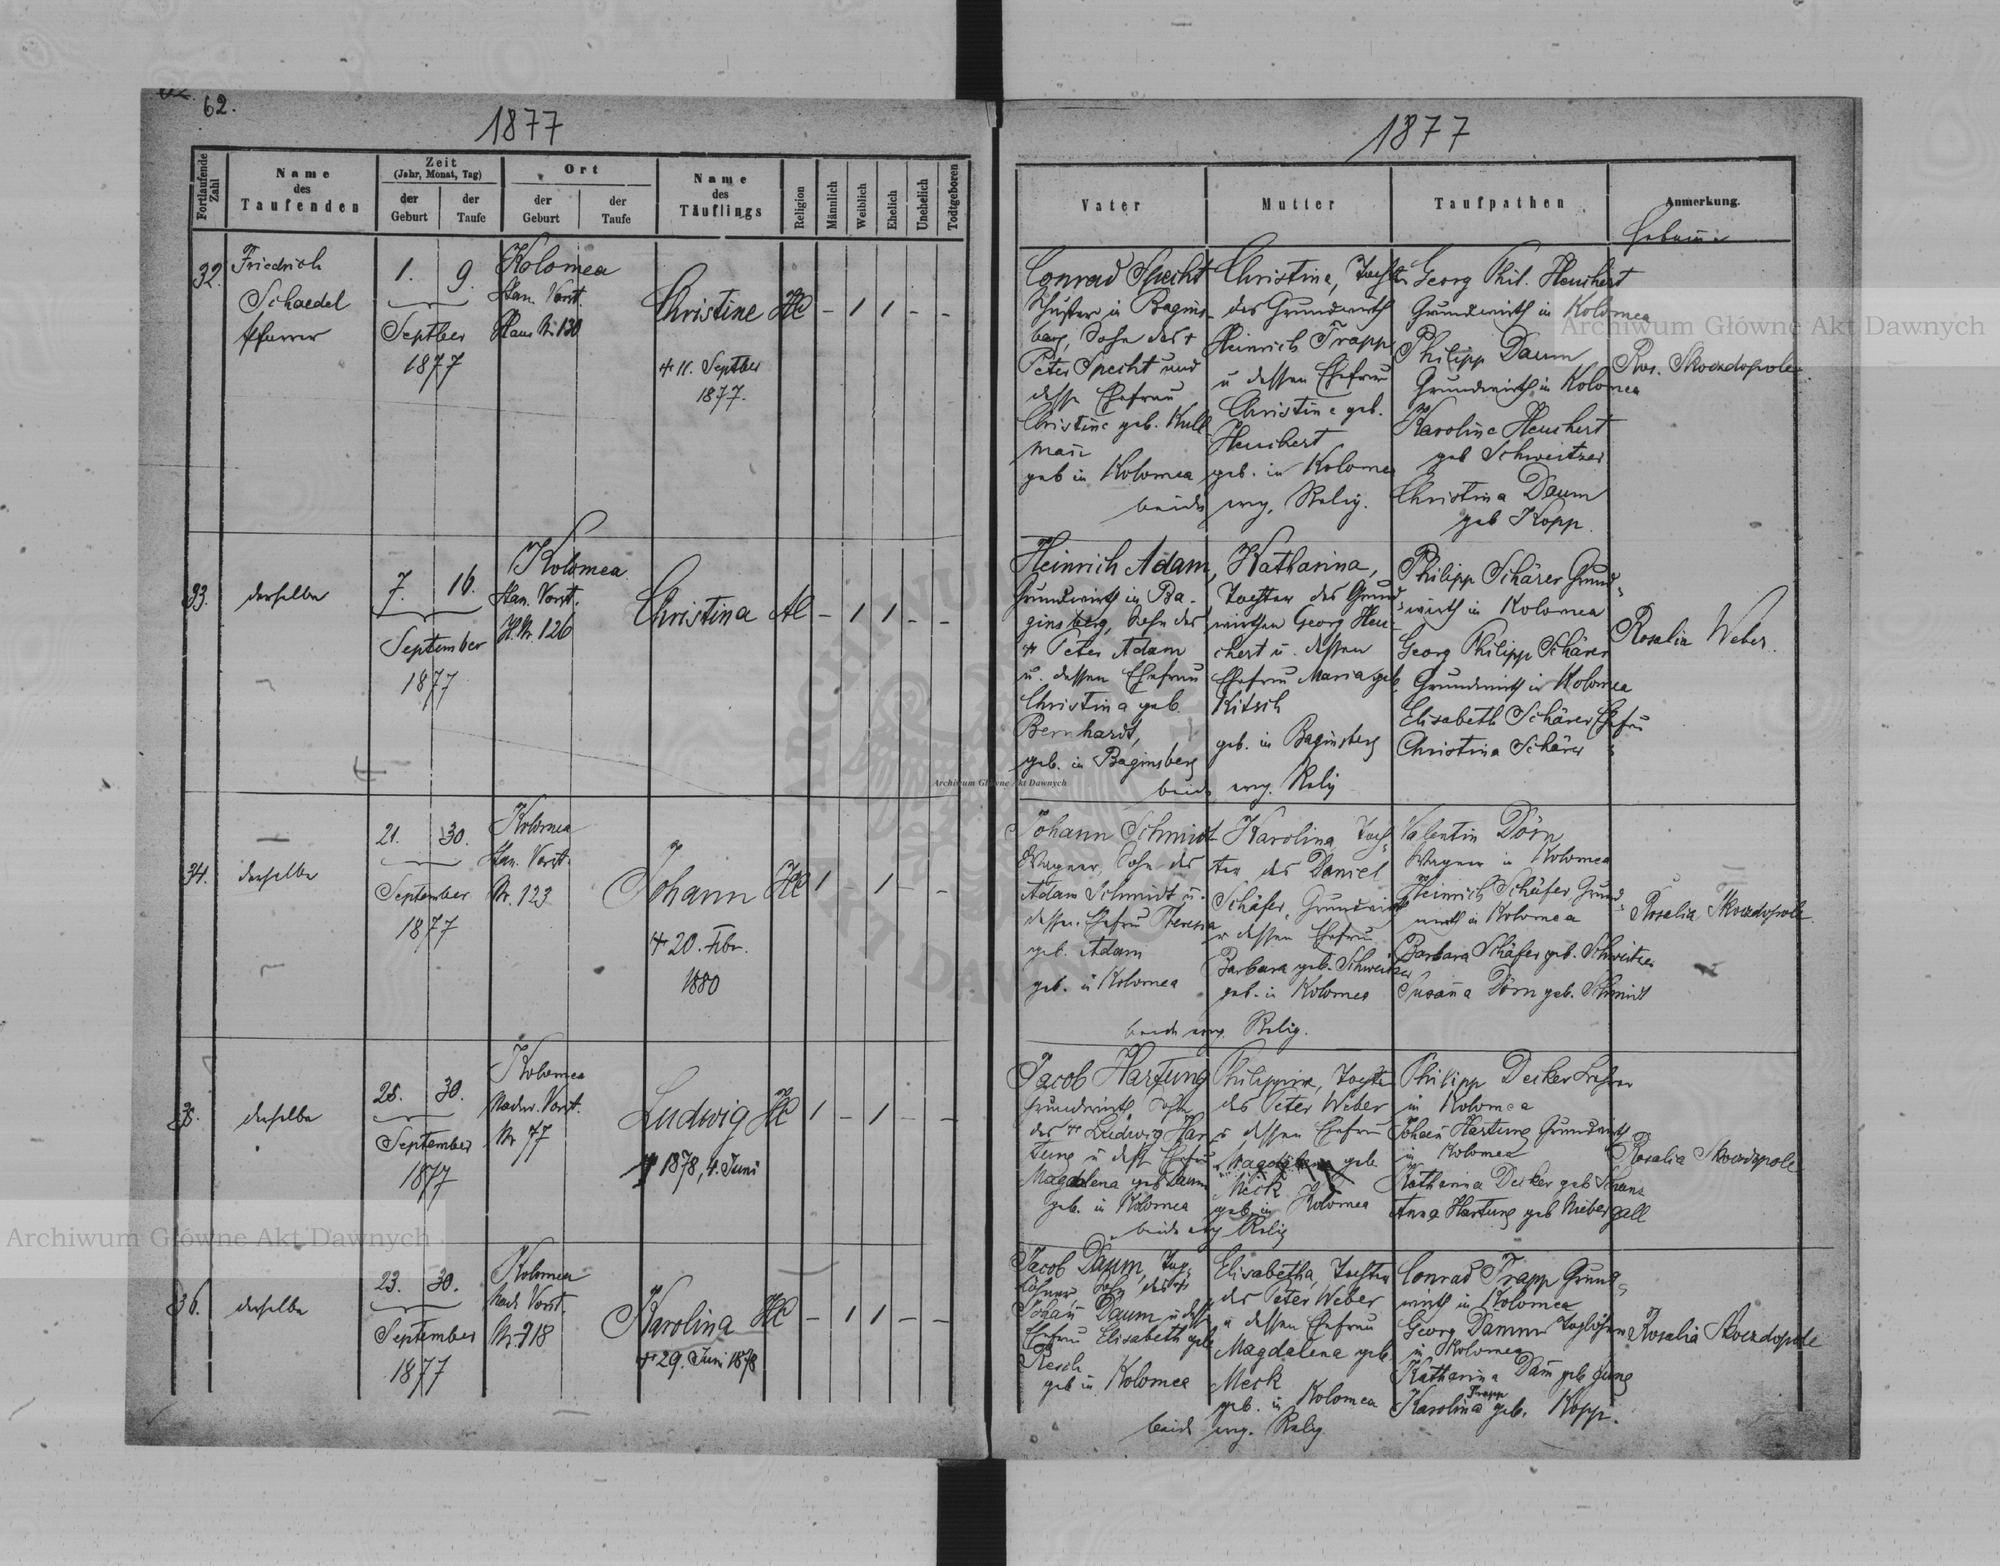 62.
1877
1877
Fortlaufende Zahl
Name des Taufenden
Zeit
(Jahr, Monat, Tag)
der Geburt
der Taufe
Ort
der Geburt
der Taufe
Name des Täuflings
Religion
Männlich
Weiblich
Ehelich
Unehelich
Todtgeboren
Vater
Mutter
Taufpathen
Anmerkung.
32.
Friedrich
Schaedel
Pfarrer
1.
9.
Septber
1877
Kolomea
Stan. Vorst.
Haus Nr 130
Christine
HC
– 1 1 – –
+ 11. Septber
1877.
Conrad Specht
Schuster in Bagins-
berg, Sohn des +
Peter Specht und
dessen Ehefrau
Christine geb. Kull-
mañ
geb in Kolomea
Christina, Tochter
des Grundwirth
Heinrich Trapp
u dessen Ehefrau
Christine geb.
Heuchert
geb. in Kolomea
beide evg. Relig.
Georg Phil. Heuchert
Grundwirth in Kolomea
Philipp Daum
Grundwirth in Kolomea
Karoline Heuchert
geb Schweitzer
Christina Daum
geb Kopp.
Ros. Skozdopole
33.
derselbe
7.
16.
September
1877
Kolomea
Stan. Vorst.
H. Nr. 126
Christina
AC
– 1 1 – –
Heinrich Adam,
Grundwirth in Ba-
ginsberg, Sohn des
+ Peter Adam
u. dessen Ehefrau
Christina geb.
Bernhardt,
geb. in Baginsberg
Katharina,
Tochter des Grund-
wirthen Georg Heu-
chert u. dessen
Ehefrau Maria geb.
Kitsch
geb. in Baginsberg
beide evg. Relig
Philipp Schärer Grund-
wirth in Kolomea
Georg Philipp Schärer
Grundwirth in Kolomea
Elisabeth Schärer Ehefrau
Christina Schärer "
Rosalia Weber.
34.
derselbe
21.
30.
September
1877
Kolomea
Stan. Vorst.
Nr. 123
Johann
HC
1 – 1 – –
+ 20. Febr.
1880
Johann Schmidt
Wagner, Sohn des
Adam Schmidt u.
dessen Ehefrau Theresia
geb. Adam
geb. in Kolomea
Karolina Toch-
ter des Daniel
Schäfer, Grundwirth
u dessen Ehefrau
Barbara geb. Schweitzer
geb. in Kolomea
beide evg. Relig.
Valentin Dörn
Wagner in Kolomea
Heinrich Schäfer Grund-
wirth in Kolomea
Barbara Schäfer geb. Schweitzer
Susaña Dörn geb. Schmidt
Rosalia Skozdopole
35.
derselbe
28.
30.
September
1877
Kolomea
Nadw. Vorst.
Nr 77
Ludwig
HC
1 – 1 – –
+ 1878, 4. Juni
Jacob Hartung
Grundwirth, Sohn
des + Ludwig Har-
tung u dess Ehefrau
Magdalena geb Daum
geb. in Kolomea
Philippine, Tochter
des Peter Weber
u dessen Ehefrau
Magdalena geb
Meck
geb. in Kolomea
beide evg Relig
Philipp Decker Lehrer
in Kolomea
Johañ Hartung Grundwirth
in Kolomea
Katharina Decker geb Schanz
Anna Hartung geb Niebergall
Rosalia Skozdopole
36.
derselbe
23.
30.
September
1877
Kolomea
Nadw Vorst.
Karolina
HC
– 1 1 – –
+ 29. Juni 1878
Jacob Daum, Tag-
löhner Sohn des +
Johañ Daum u dess
Ehefrau Elisabeth geb
Resch
geb in Kolomea
Elisabetha, Tochter
des Peter Weber
u dessen Ehefrau
Magdalena geb
Meck
geb. in Kolomea
beide evg. Relig.
Conrad Trapp Grund-
wirth in Kolomea
Georg Damm Taglöhner
in Kolomea
Katharina Dam̃ geb Jung
Karolina Trapp geb. Kopp.
Rosalia Skozdopole
Archiwum Główne Akt Dawnych
Archiwum Główne Akt Dawnych
Archiwum Główne Akt Dawnych